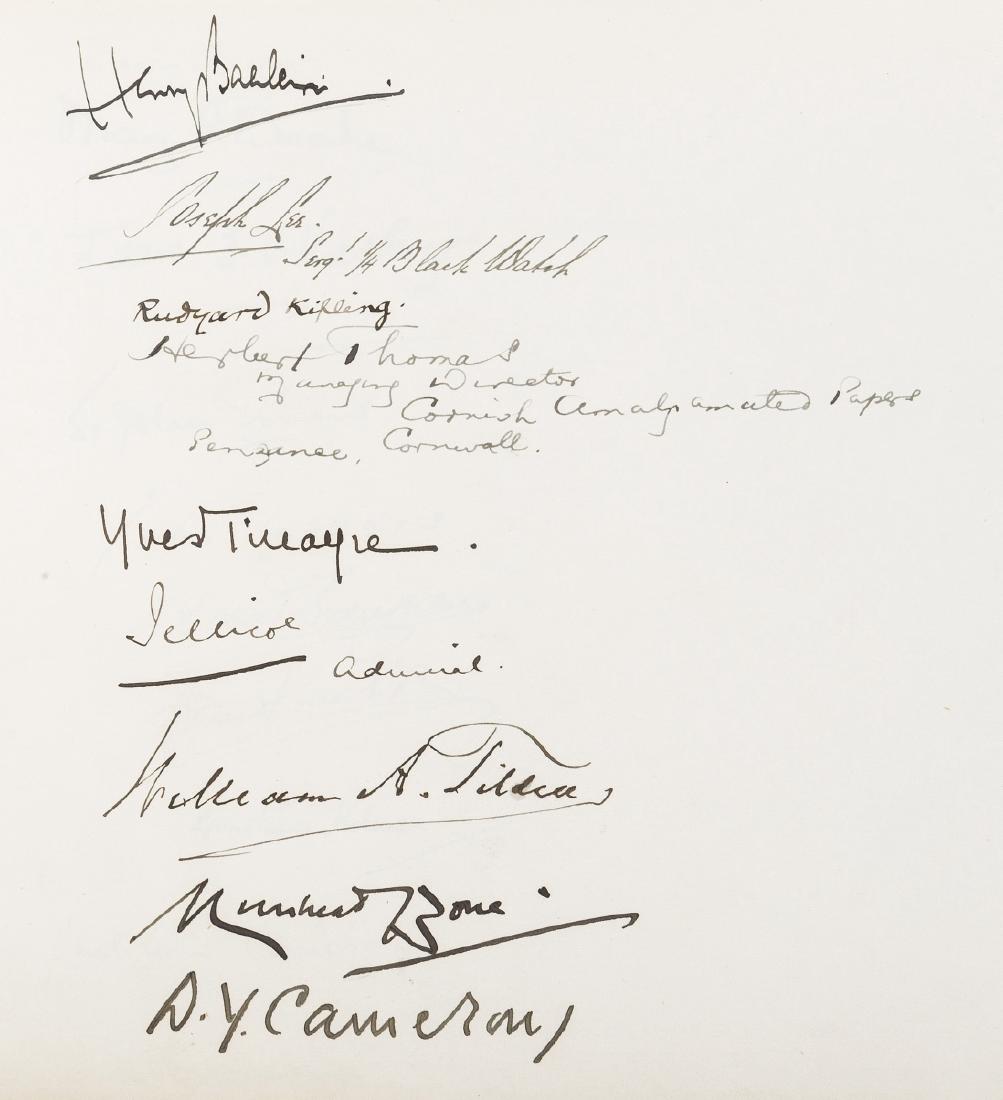 Henry
Joseph Lee.
Sergt 1/4 Black Watch
Rudyard Kipling.
Herbert Thomas
Managing Director
Cornish Amalgamated Papers
Penzance, Cornwall.
Yves Tinayre.
Jellicoe
Admiral.
William A. Tilden
Muirhead Bone.
D. Y. Cameron